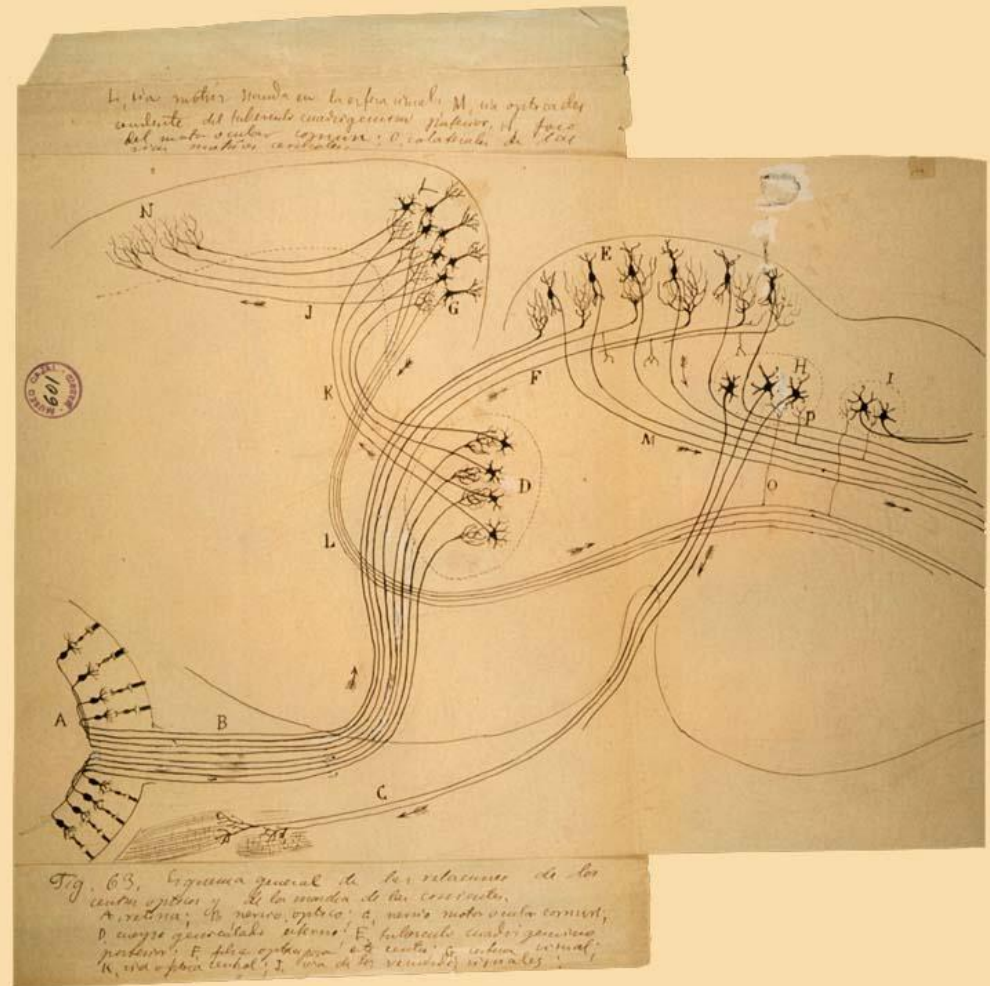 L, via motriz nacida en la esfera visual; M, via optica des
cendente del tuberculo cuadrigemino posterior; N foco
del motor ocular comun; O, colaterales de las
vias motrices centrales.
N
L
G
E
J
K
F
H
I
P
M
D
O
L
MUSEO CAJAL
601
A
B
C
Fig. 63. Esquema general de las relaciones de los
centros opticos y de la marcha de las corrientes.
A, retina; B nervio optico; C, nervio motor ocular comun;
D cuerpo geniculado externo; E, tuberculo cuadrigemino
posterior; F fibra optica para este centro; G corteza visual;
K, via optica central; J, via de los recuerdos visuales;